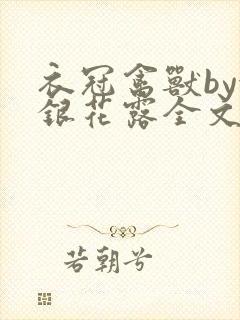 衣冠禽獸by
銀花露全文
若朝兮